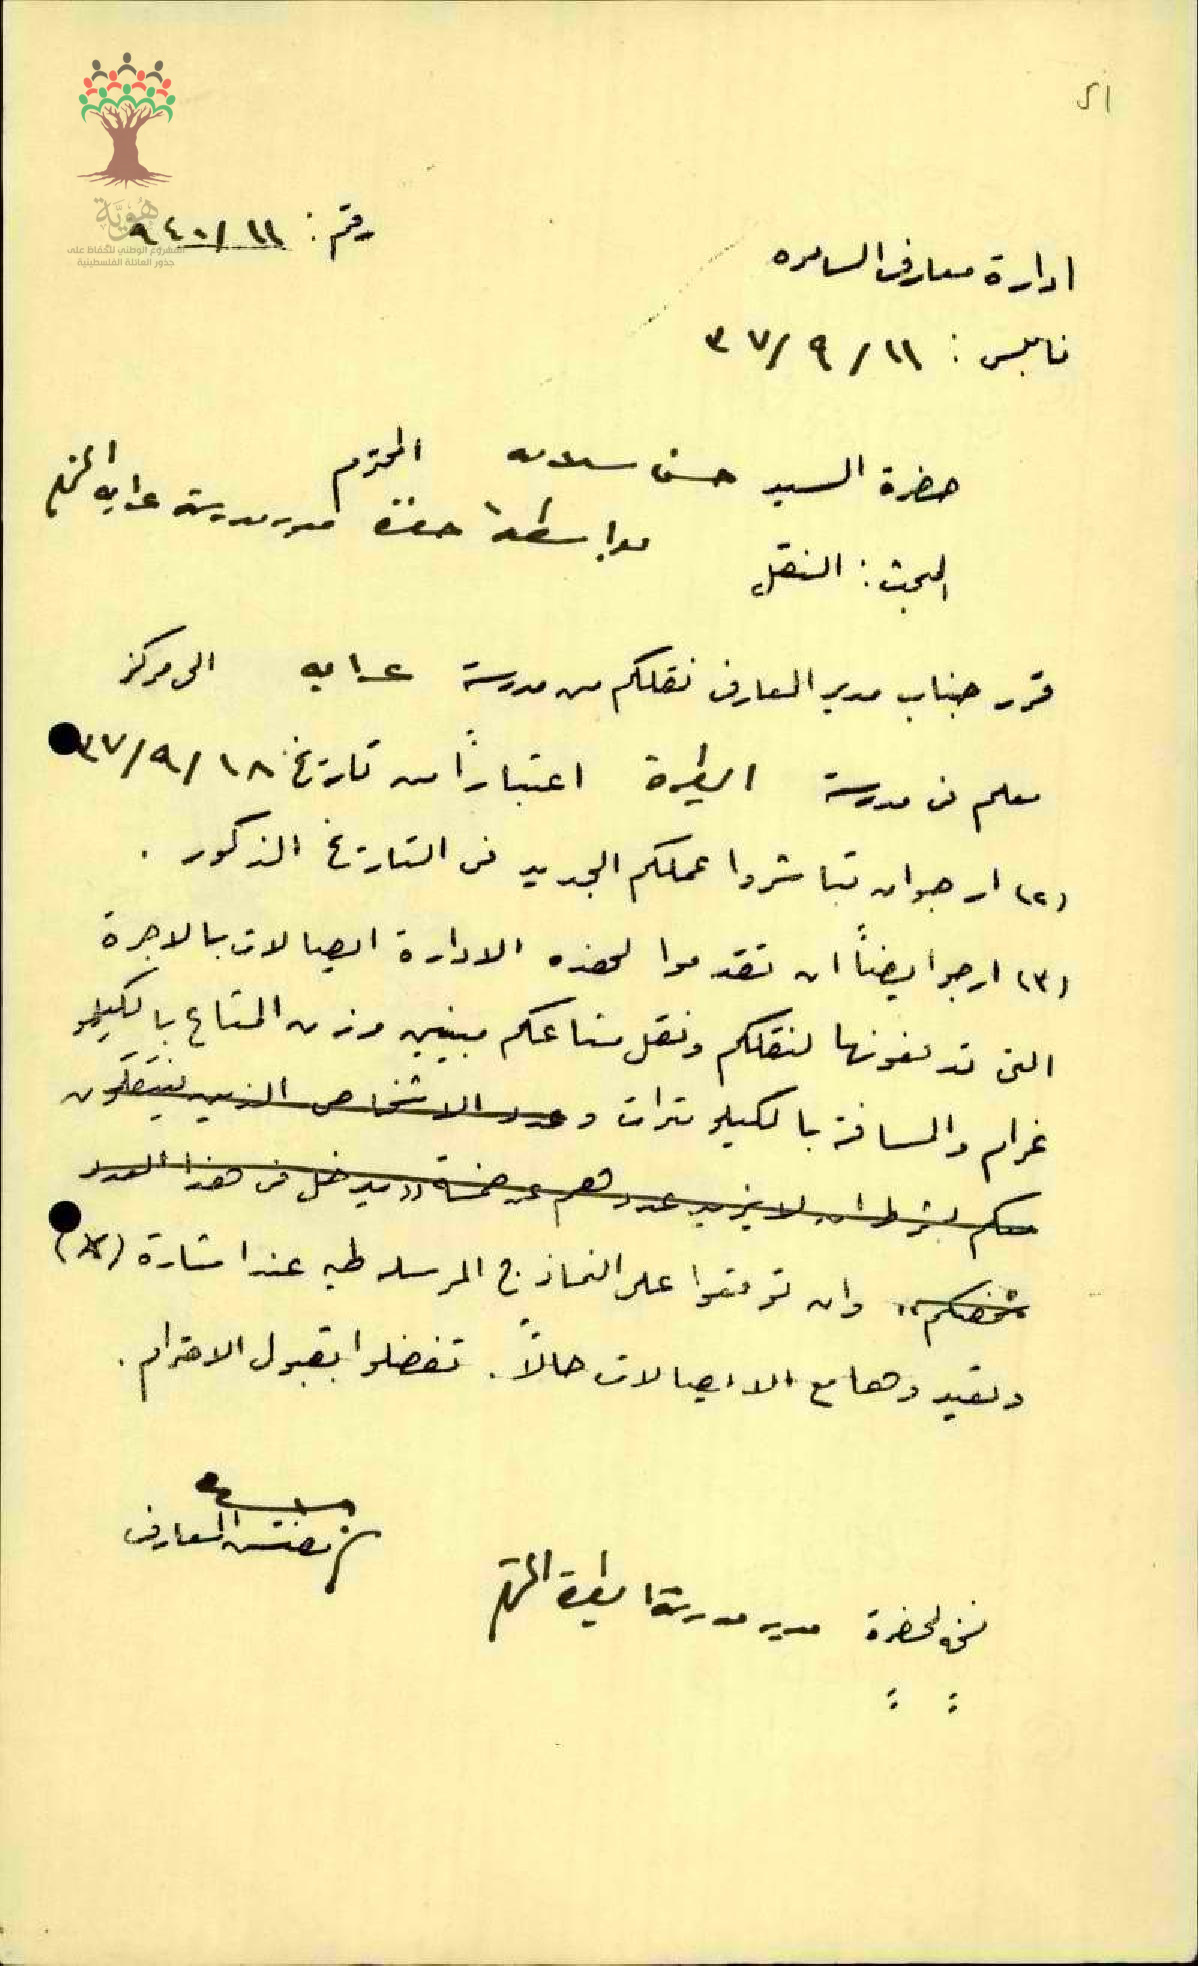 ٥١
رقم: ١١/٩٤٠
هُوِيَّة
المشروع الوطني للحفاظ على
جذور العائلة الفلسطينية
ادارة معارف السامره
نابلس: ١١/٩/٣٧
حضرة السيد حسن سلامه المحترم
بواسطة حضرة مدير مدرسة عرابه المحترم
البحث: النقل
قرر جناب مدير المعارف نقلكم من مدرسة عرابه الى مركز
معلم في مدرسة الطيرة اعتباراً من تاريخ ١٨/٩/٣٧
(٢) ارجو ان تباشروا عملكم الجديد في التاريخ المذكور.
(٣) ارجو ايضاً ان تقدموا لهذه الادارة ايصالات بالاجرة
التي تدفعونها لنقلكم ونقل متاعكم مبينين وزن المتاع بالكيلو
غرام والمسافة بالكيلومترات وعدد الاشخاص الذين ينتقلون
معكم بشرط ان لا يزيد عددهم عن خمسة «ويدخل في هذا العدد
شخصكم» وان توقعوا على النماذج المرسله طيه عند اشارة (X)
وتعيدوها مع الايصالات حالاً. تفضلوا بقبول الاحترام.
مفتش المعارف
نسخه لحضرة مدير مدرسة الطيرة المحترم